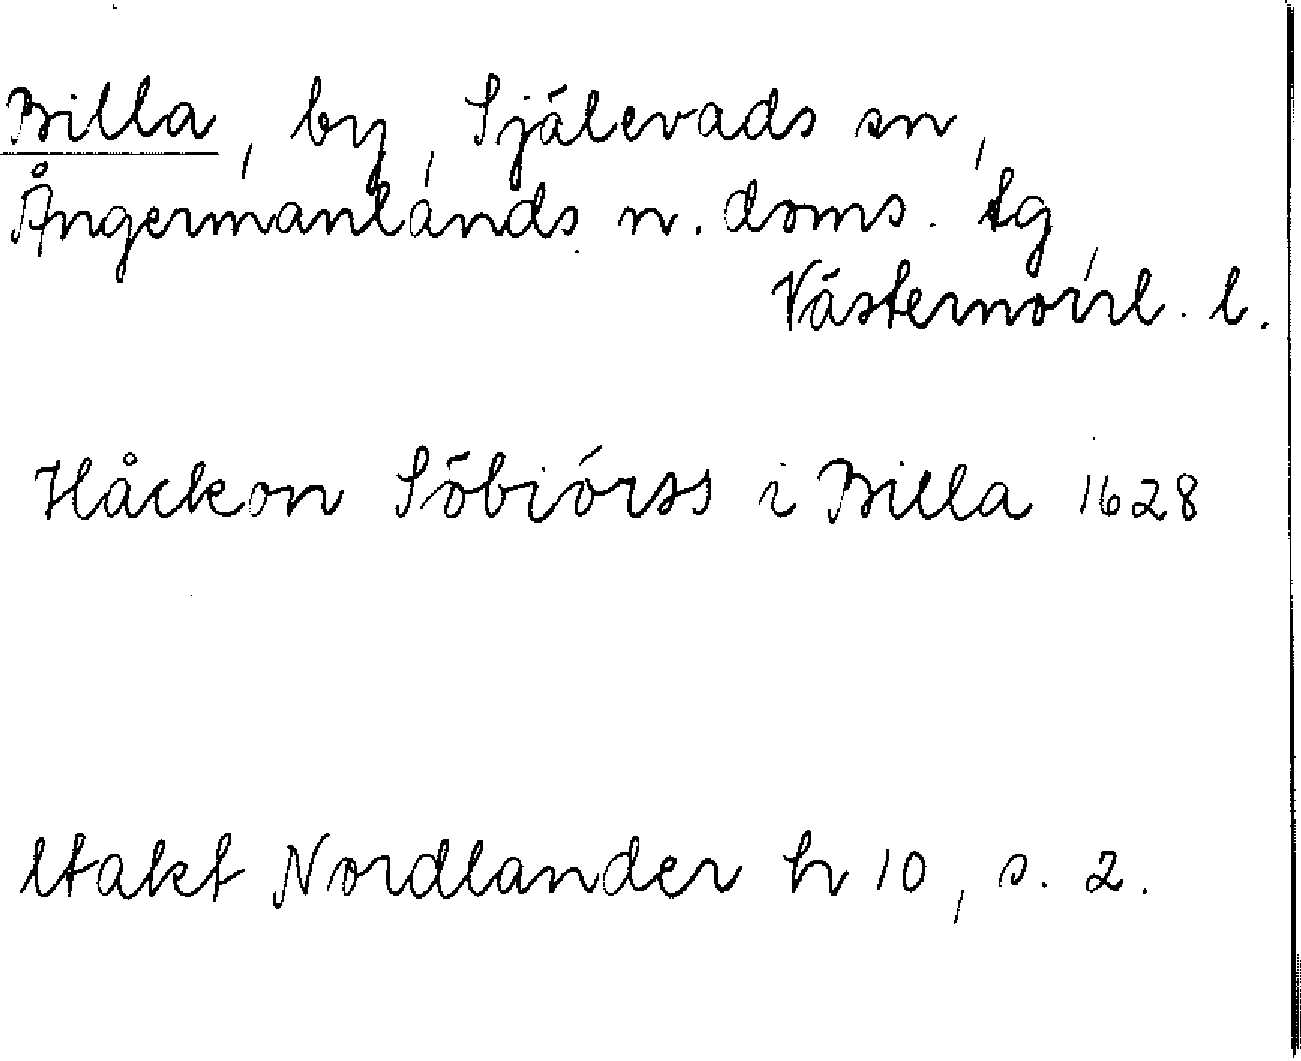 Billa, by, Själevads sn,
Ångermanlands n. doms. tg,
Västernorrl. l.
Håckon Söbiörss i Billa 1628
Utakt Nordlander h 10, s. 2.